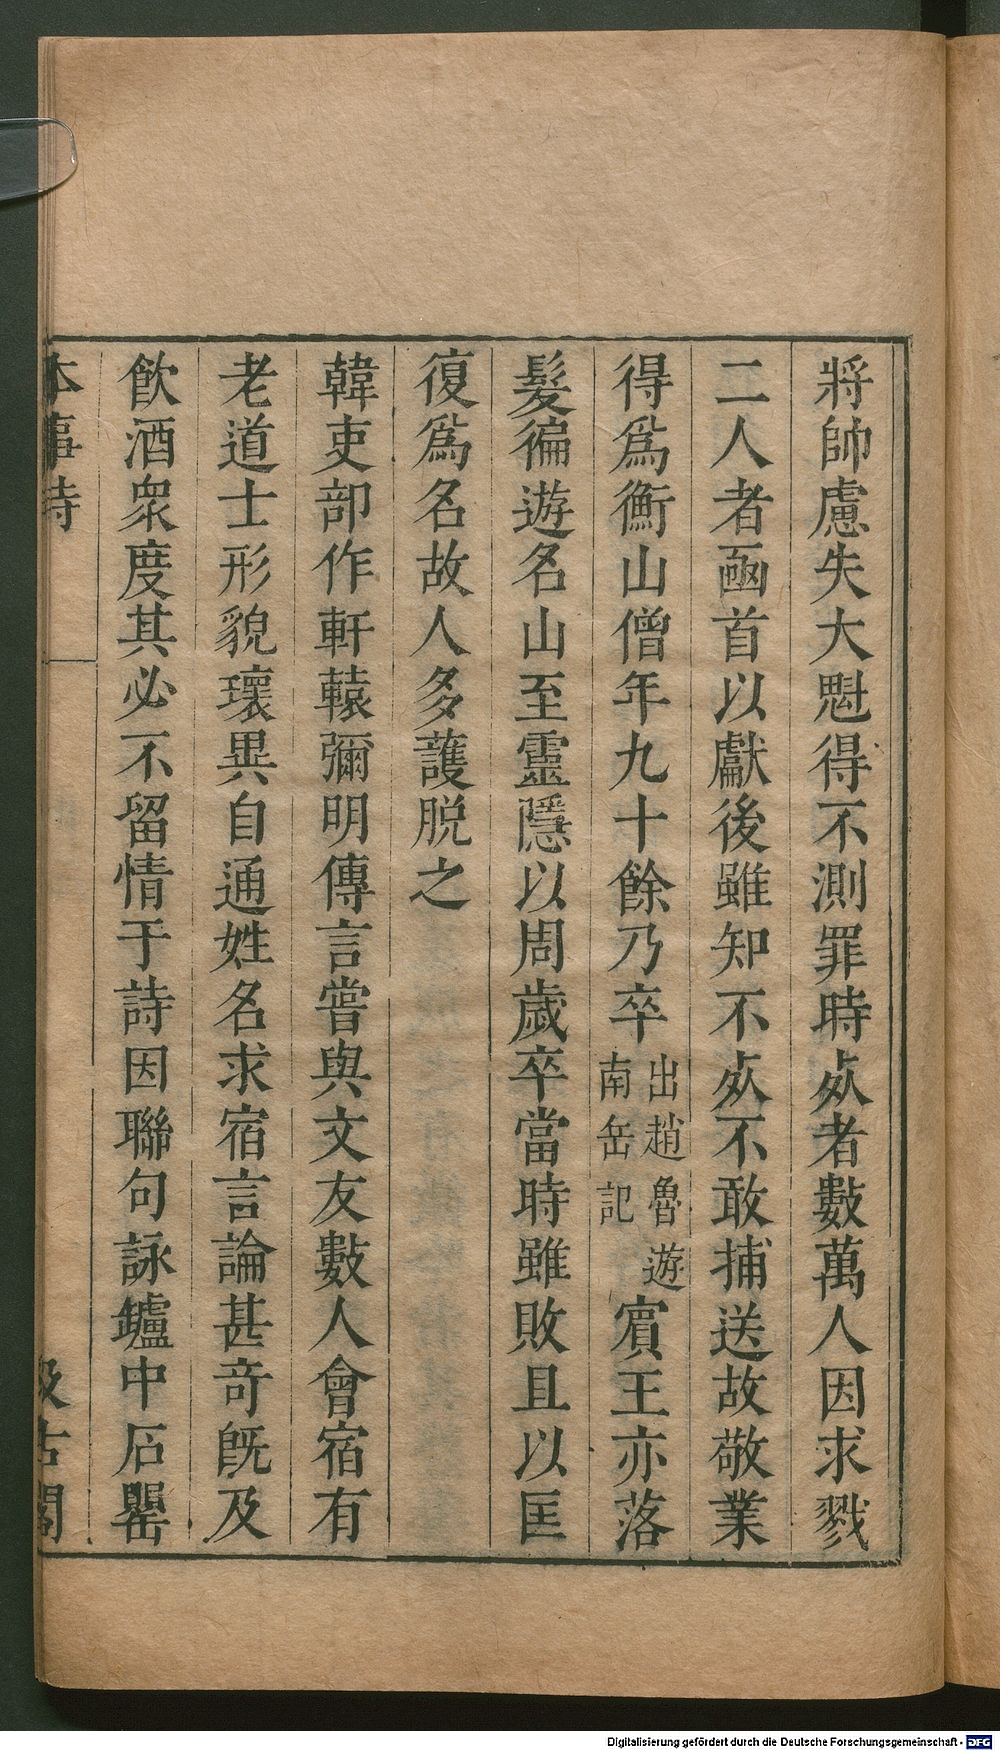 將帥慮失大魁得不測罪時死者數萬人因求戮
二人者函首以獻後雖知不死不敢捕送故敬業
得爲衡山僧年九十餘乃卒出趙魯遊南岳記賔王亦落
髮徧遊名山至靈隱以周歲卒當時雖敗且以匡
復爲名故人多護脱之
韓吏部作軒轅彌明傳言嘗與文友數人會宿有
老道士形貌瓌異自通姓名求宿言論甚奇旣及
飲酒衆度其必不留情于詩因聯句詠鑪中石罌
本事詩
汲古閣
Digitalisierung gefördert durch die Deutsche Forschungsgemeinschaft - DFG